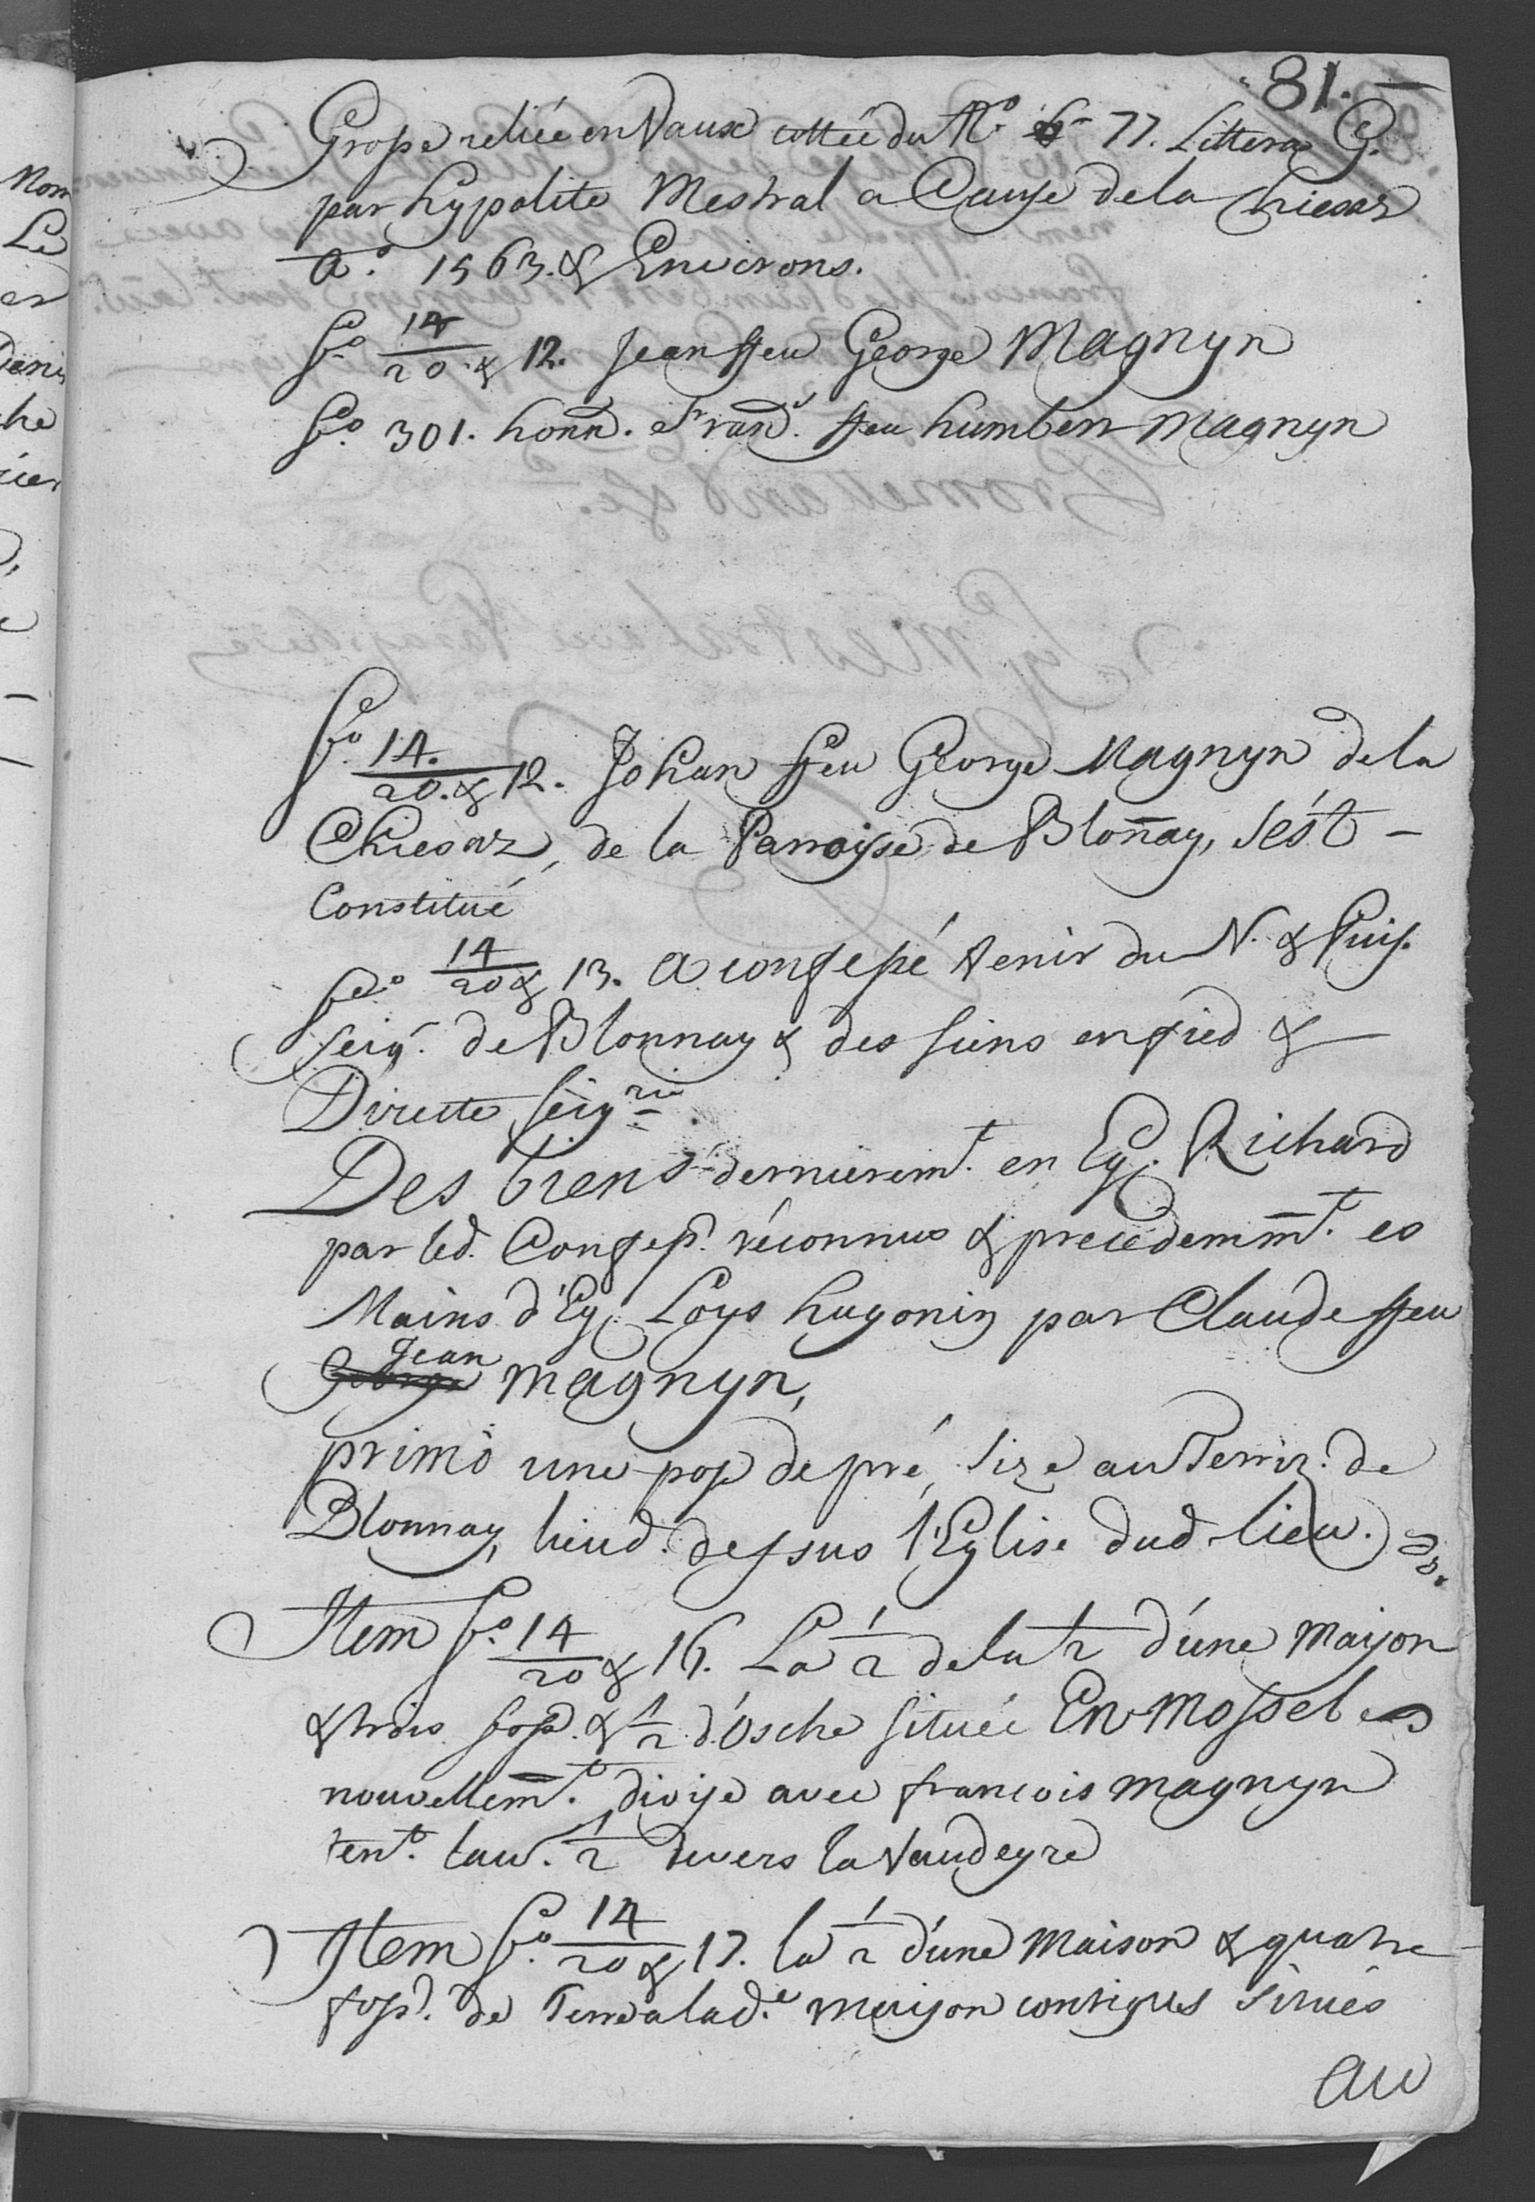 81.
Grosse reliée en Vaux cottée du N.º 77. Littera G.
par hypolite Mestral a Cause de la Chiesaz
A.º 1563. & Environs.
f.º 14/20 & 12. Jean ffeu George Magnyn
f.º 301. honn. Franc. ffeu humbert Magnyn
f.º 14./20. & 12. Johan ffeu George Magnyn de la
Chiesaz, de la Parroisse de Blonnay, sést
Constitué
f.º 14/20 & 13. A confessé tenir du N. & Puis.
seig.r de Blonnay & des siens en fied &
Directe seig.rie
Des biens dernierem.t en Eg. Richard
par led. Confess. réconnus & precedemm.t es
Mains d'Eg. Loys hugonin par Claude ffeu
Jean
George Magnyn,
primò une pose de pré, size au Territ. de
Blonnay, lieud. dessus l'Eglise dud. lieu.
Item f.º 14/20 & 16. La 1/2 de la 1/2 d'une maison
& trois foss. & 1/2 d'Osche située En Mossel
nouvellem.t divise avec françois magnyn
ten.t lau. 1/2 devers la Vaudeyre
Item f.º 14/20 & 17. la 1/2 d'une Maison & quatre
foss. de Terre a lad.e maison contigues situés
au